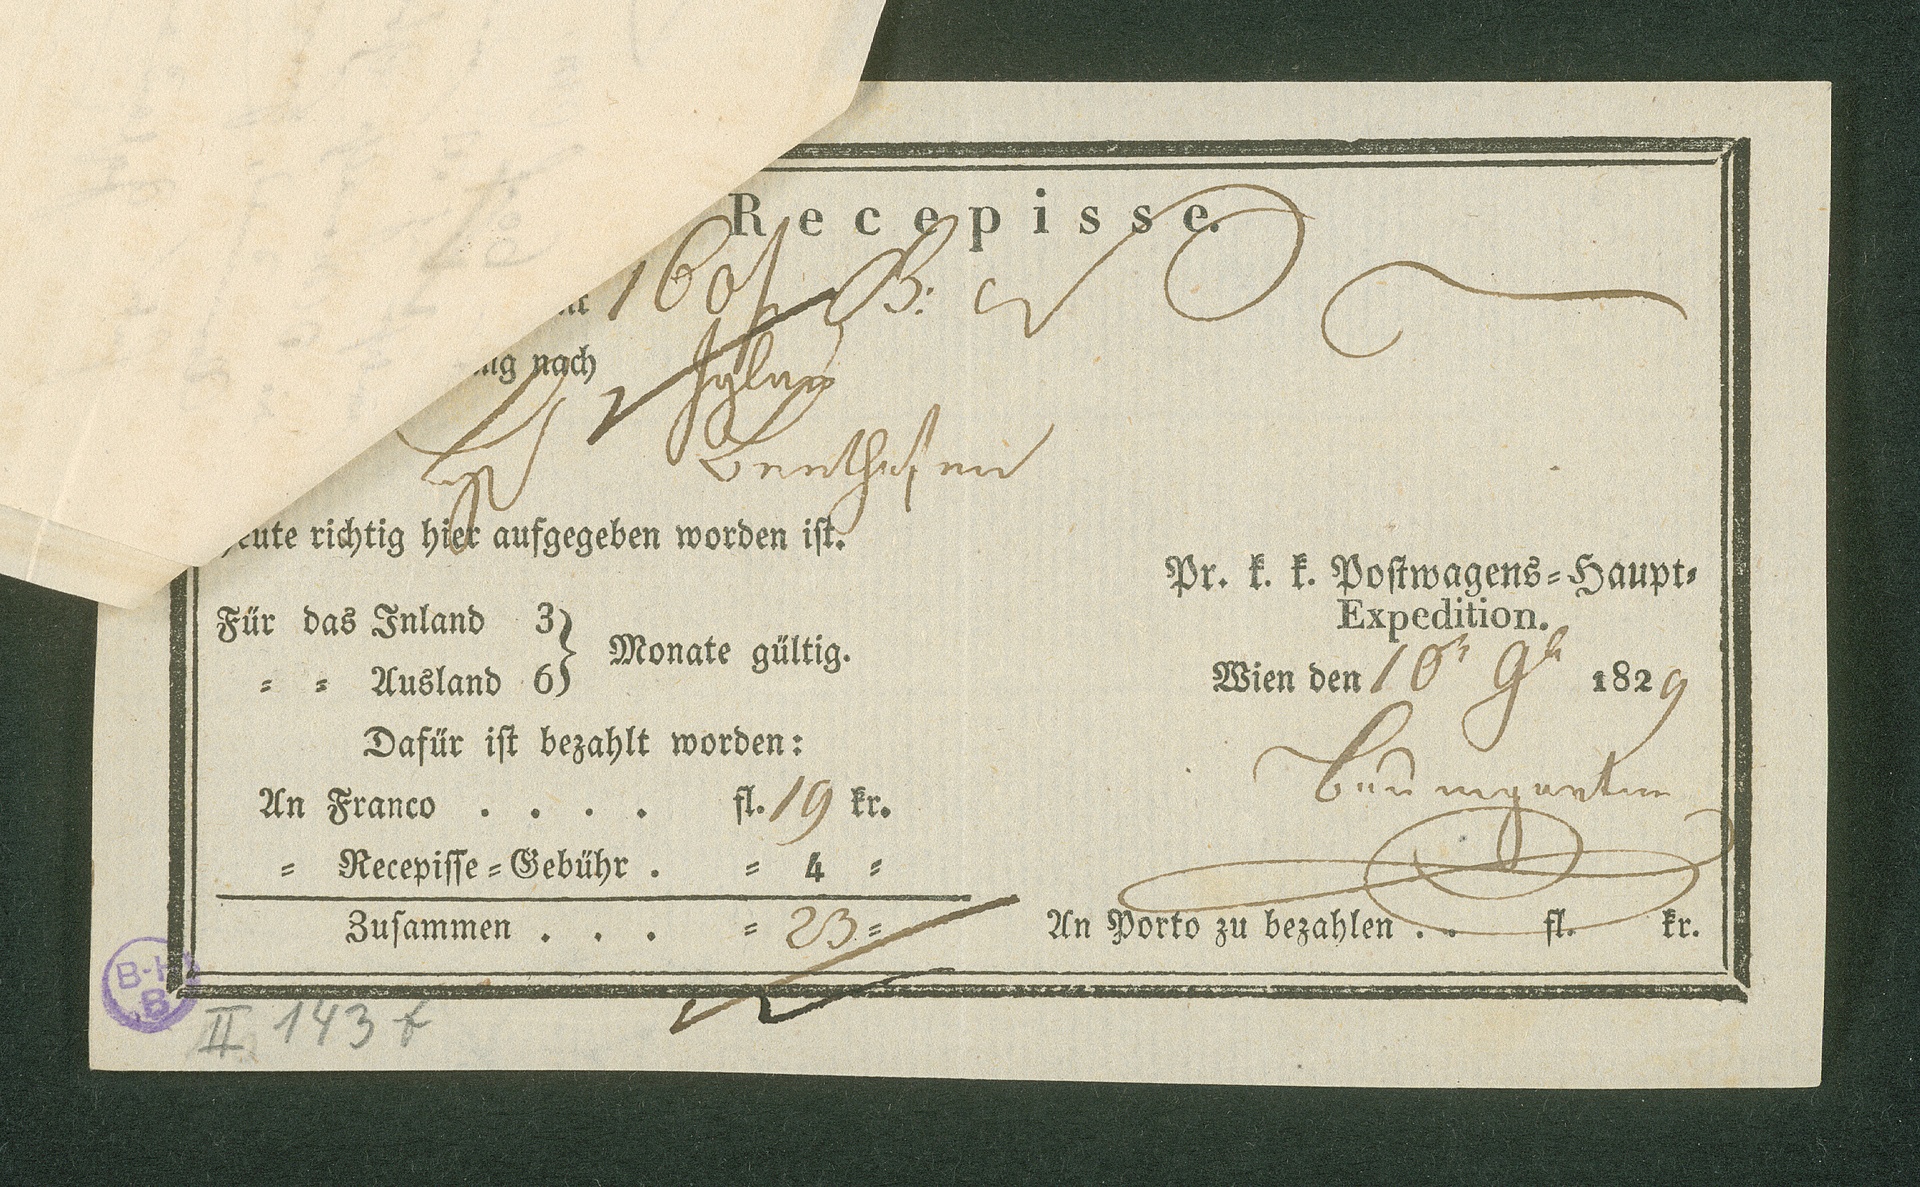 Recepisse.
160 f
nach Iglau
Beethofen
heute richtig hier aufgegeben worden ist.
Pr. k. k. Postwagens=Haupt=
Expedition.
Für das Inland 3
= = Ausland 6
Monate gültig.
Wien den 10r 9b 1829
Dafür ist bezahlt worden:
Baumgarten
An Franco . . . . fl. 19 kr.
= Recepisse=Gebühr . = 4 =
Zusammen . . . = 23 =
An Porto zu bezahlen . . fl. kr.
B-H
B
II 143 f